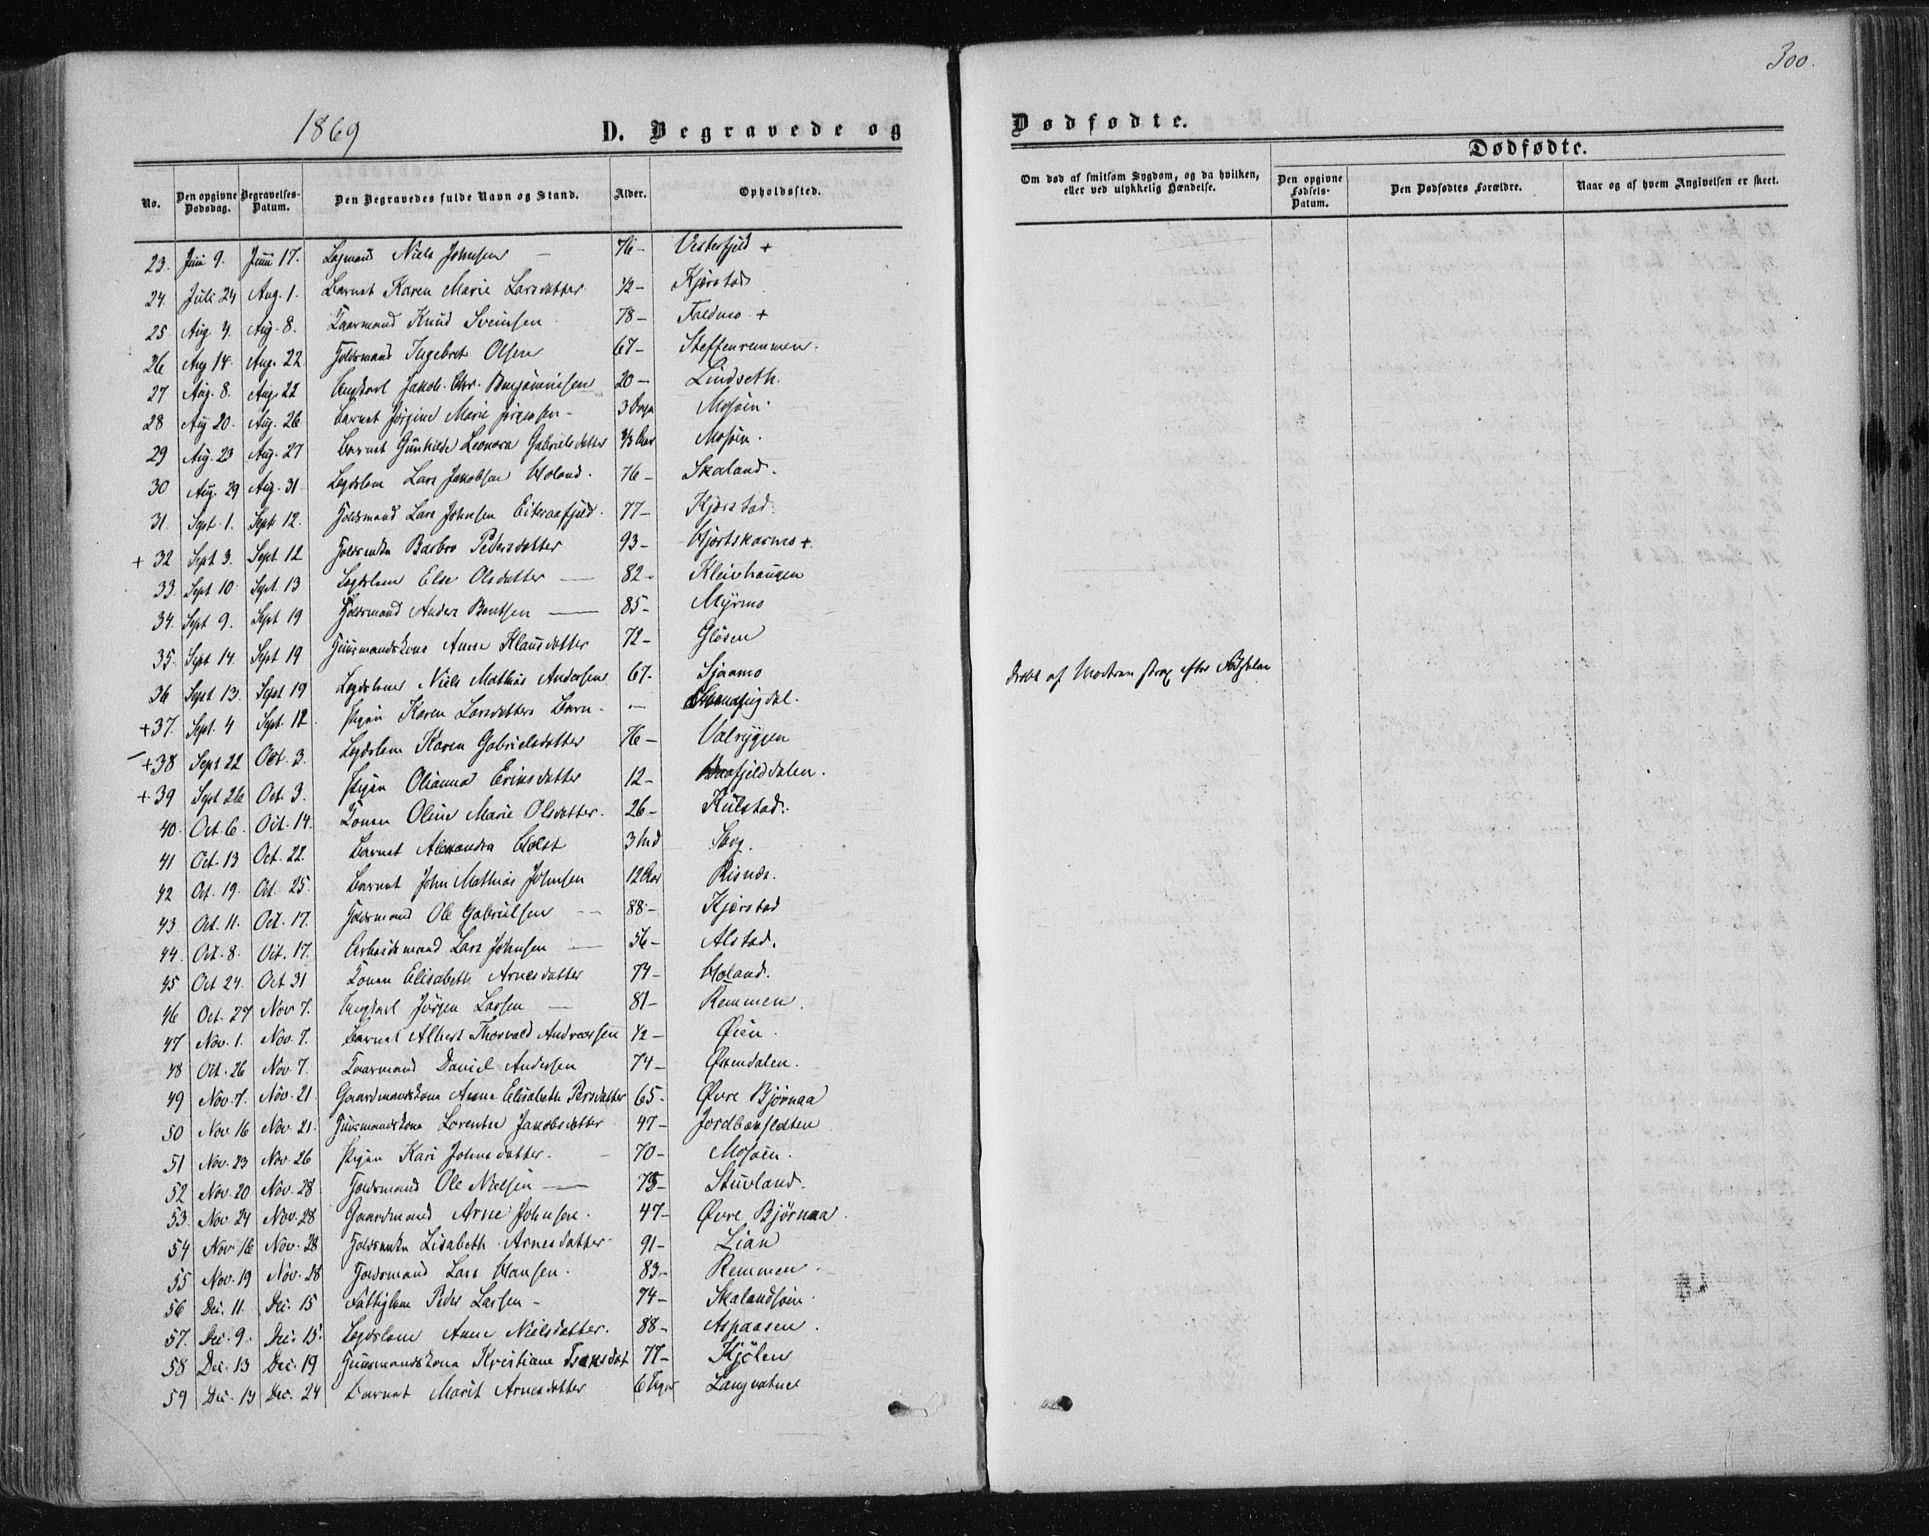 300.
1869 D. Begravede og Dødfødte.
Dødfødte.
No. Den opgivne Dødsdag. Begravelses-Datum. Den Begravedes fulde Navn og Stand. Alder. Opholdssted.
Om død af smitsom Sygdom, og da hvilken, eller ved ulykkelig Hændelse. Den opgivne Fødsels-Datum. Den Dødfødtes Forældre. Naar og af hvem Angivelsen er skeet.
23. Juni 9. Juni 17. Lægmand Niels Johnsen — 76 — Vesterfjeld +
24. Juli 24 Aug. 1. Barnet Karen Marie Larsdatter ½ — Kjærstad
25 Aug. 4. Aug. 8. Kaarmand Knud Sveinsen 78 — Faldmo +
26 Aug 14. Aug. 22 Foldsmand Ingebret Olsen 67 — Steffenremmen.
27 Aug. 8. Aug. 22 Ungkarl Jakob Chr. Benjaminsen 20 — Lindseth.
28 Aug 20. Aug. 26 Barnet Jørgine Marie Jørgensen — 3 Dage Mosøen.
29 Aug. 23 Aug. 27 Barnet Gunhilde Leonora Gabrielsdatter Aar Mosøen.
30 Aug. 29 Aug. 31 Lægdslem Lars Jakobsen Holand. 76 — Skaland.
31. Sept. 1. Sept. 12. Foldsmand Lars Johnsen Eiteraafjeld. 77 — Kjærstad.
+ 32 Sept 3. Sept. 12 Foldsenke Barbro Pedersdatter 93 — Hjortskarmo +
33. Sept 10. Sept. 13 Lægdslem Else Olsdatter — 82 — Kleivhaugen
34. Sept 9. Sept 19 Foldsmand Anders Bentsen — 85 — Myrmo
35. Sept 14. Sept 19 Huusmandskone Anne Klausdatter 72 — Gløsen
36 Sept 13. Sept 19 Lægdslem Niels Mathias Andersen 67 — Sjaamo
+ 37. Sept. 4 Sept. 12. Pigen Karen Larsdatters Barn — — dal. Dræbt af Moderen strax efter Fødselen
+ 38 Sept 22 Oct. 3. Lægdslem Karen Gabrielsdatter 76 — Valryggen
+ 39 Sept 26 Oct. 3. Pigen Olianna Eriksdatter 12 — fjelddalen.
40. Oct. 6. Oct. 14. Konen Oline Marie Olsdatter. 26 — Kulstad.
41 Oct. 13 Oct. 22. Barnet Alexandra Holst 3 Md Skog.
42 Oct. 19. Oct. 25. Barnet John Mathias Johnsen 12 Aar Risnes.
43. Oct. 11. Oct. 17. Foldsmand Ole Gabrielsen — 88 — Kjærstad
44. Oct. 8. Oct. 17. Arbeidsmand Lars Johnsen — 56 — Alstad.
45 Oct 24. Oct 31 Konen Elisabeth Arnesdatter 74 — Holand.
46 Oct. 27 Nov 7. Ungkarl Jørgen Larsen — 81 — Remmen.
47 Nov. 1. Nov. 7. Barnet Albert Thorvald Andreassen ½ — Øien.
48 Oct. 26 Nov 7. Kaarmand Daniel Andersen 74 — Øvendalen.
49 Nov. 7. Nov. 21. Gaardmandskone Anne Elisabeth Persdatter 65 — Øvre Bjørnaa
50 Nov 16 Nov. 21. Huusmandskone Lorentse Jakobsdatter 47 — Jordbækfeldten
51 Nov. 23 Nov. 26 Pigen Kari Johnsdatter. 70 — Mosøen.
52 Nov. 20 Nov. 28 Foldsmand Ole Nielsen — 75 — Stuvland.
53. Nov 24 Nov. 28 Gaardmand Arne Johnsen. 47 — Øvre Bjørnaa.
54 Nov 16 Nov. 28 Foldsenke Lisabeth Arnesdatter 91 — Lian
55 Nov. 19 Nov. 28 Foldsmand Lars Hansen. 83 — Remmen.
56 Dec. 11. Dec. 15 Fattiglem Peder Larsen — 74 — Skalandsøien.
57. Dec. 9. Dec. 15. Lægdslem Anne Nielsdatter. 88 — Aspaasen.
58 Dec. 13 Dec. 19 Huusmandskone Kristiane Isaksdat 77 — Kjølen
59 Dec. 13 Dec. 24 Barnet Marit Arnesdatter 6 Uger Langvatnet